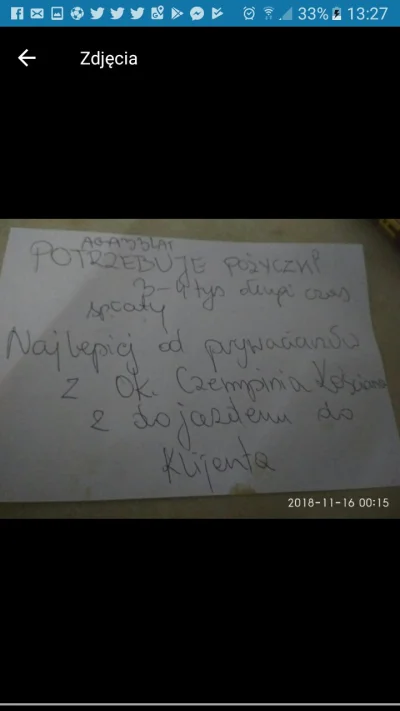 33% 13:27
Zdjęcia
AGA 33LAT
POTRZEBUJE POŻYCZKI
3-4 tys długi czas
spłaty
Najlepiej od prywaciarzów
z ok. Czempinia Kościana
z dojazdem do
Klijenta
2018-11-16 00:15